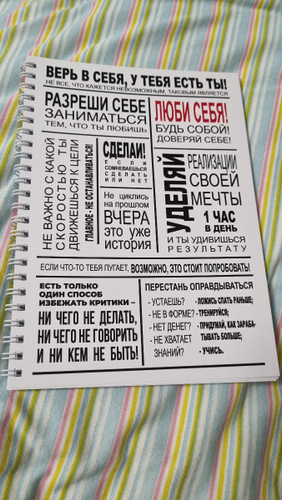 ВЕРЬ В СЕБЯ, У ТЕБЯ ЕСТЬ ТЫ!
НЕ ВСЕ, ЧТО КАЖЕТСЯ НЕВОЗМОЖНЫМ, ТАКОВЫМ ЯВЛЯЕТСЯ
РАЗРЕШИ СЕБЕ
ЗАНИМАТЬСЯ
ТЕМ, ЧТО ТЫ ЛЮБИШЬ
ЛЮБИ СЕБЯ!
БУДЬ СОБОЙ!
ДОВЕРЯЙ СЕБЕ!
НЕ ВАЖНО С КАКОЙ
СКОРОСТЬЮ ТЫ
ДВИЖЕШЬСЯ К ЦЕЛИ
ГЛАВНОЕ - НЕ ОСТАНАВЛИВАТЬСЯ!
СДЕЛАЙ!
ЕСЛИ
СОМНЕВАЕШЬСЯ
СДЕЛАТЬ
ИЛИ НЕТ
Не циклись
на прошлом
ВЧЕРА
это уже
история
УДЕЛЯЙ
РЕАЛИЗАЦИИ
СВОЕЙ
МЕЧТЫ
1 ЧАС
В ДЕНЬ
И ТЫ УДИВИШЬСЯ
РЕЗУЛЬТАТУ
ЕСЛИ ЧТО-ТО ТЕБЯ ПУГАЕТ, ВОЗМОЖНО, ЭТО СТОИТ ПОПРОБОВАТЬ!
ЕСТЬ ТОЛЬКО
ОДИН СПОСОБ
ИЗБЕЖАТЬ КРИТИКИ -
НИ ЧЕГО НЕ ДЕЛАТЬ,
НИ ЧЕГО НЕ ГОВОРИТЬ
И НИ КЕМ НЕ БЫТЬ!
ПЕРЕСТАНЬ ОПРАВДЫВАТЬСЯ
- УСТАЕШЬ? - ЛОЖИСЬ СПАТЬ РАНЬШЕ;
- НЕ В ФОРМЕ? - ТРЕНИРУЙСЯ;
- НЕТ ДЕНЕГ? - ПРИДУМАЙ, КАК ЗАРАБА-
ТЫВАТЬ БОЛЬШЕ;
- НЕ ХВАТАЕТ
ЗНАНИЙ? - УЧИСЬ.